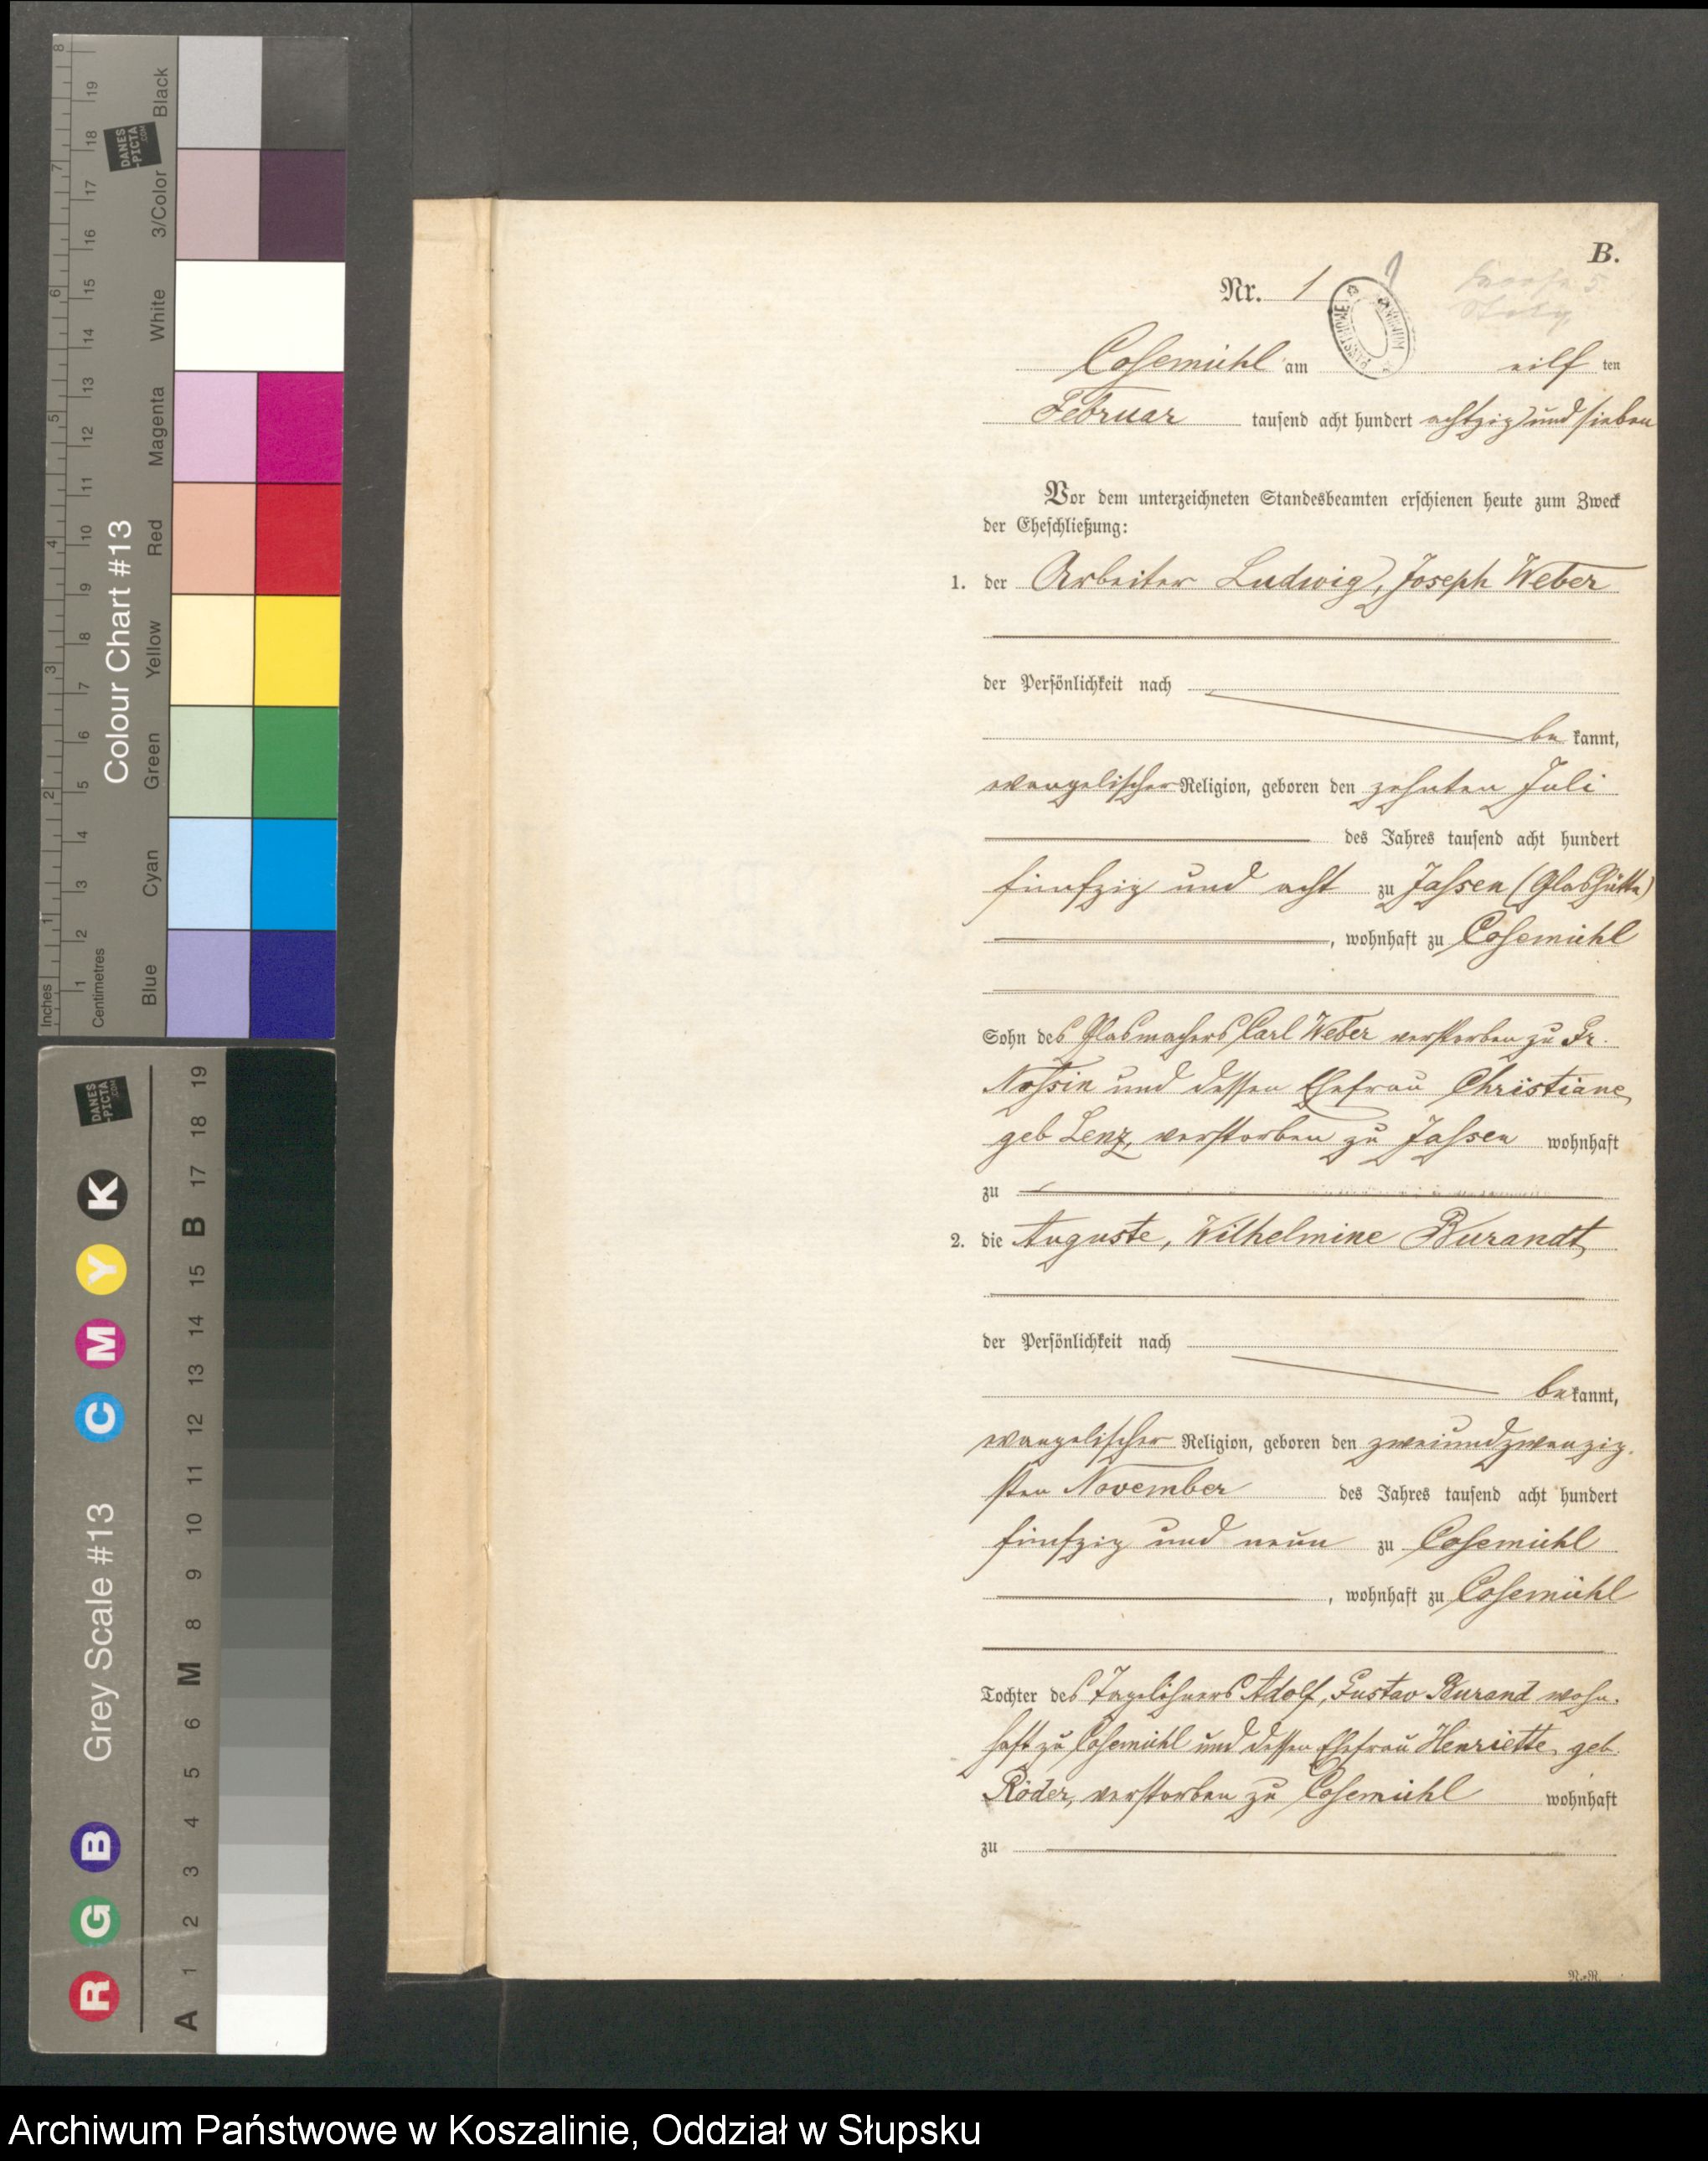 B.
Nr. 1
Cosemühl am eilf ten
Februar tausend acht hundert achtzig und sieben
Vor dem unterzeichneten Standesbeamten erschienen heute zum Zweck
der Eheschließung:
1. der Arbeiter Ludwig, Joseph Weber
der Persönlichkeit nach
be kannt,
evangelischer Religion, geboren den zehnten Juli
des Jahres tausend acht hundert
fünfzig und acht zu Jassen (Glashütte)
, wohnhaft zu Cosemühl
Sohn des Glasmachers Carl Weber verstorben zu Gr.
Nossin und dessen Ehefrau Christiane,
geb Lenz, verstorben zu Jassen wohnhaft
zu
2. die Auguste, Wilhelmine Burandt,
der Persönlichkeit nach
be kannt,
evangelischer Religion, geboren den zweiundzwanzig-
sten November des Jahres tausend acht hundert
fünfzig und neun zu Cosemühl
, wohnhaft zu Cosemühl
Tochter des Tagelöhners Adolf, Gustav Burand wohn-
haft zu Cosemühl und dessen Ehefrau Henriette, geb.
Röder, verstorben zu Cosemühl wohnhaft
zu
Colour Chart #13
Blue Cyan Green Yellow Red Magenta White 3/Color Black
Inches 1 2 3 4 5 6 7 8
Centimetres 1 2 3 4 5 6 7 8 9 10 11 12 13 14 15 16 17 18 19
DANES
-PICTA
.COM
Grey Scale #13
R G B C M Y K
A 1 2 3 4 5 6 M 8 9 10 11 12 13 14 15 B 17 18 19
DANES
-PICTA
.COM
Archiwum Państwowe w Koszalinie, Oddział w Słupsku